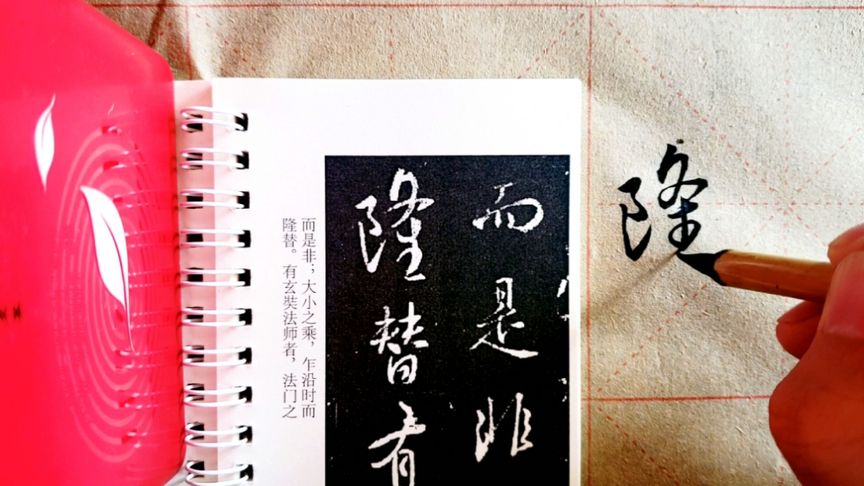 而是非
隆替有
而是非；大小之乘，乍沿时而
隆替。有玄奘法师者，法门之
隆